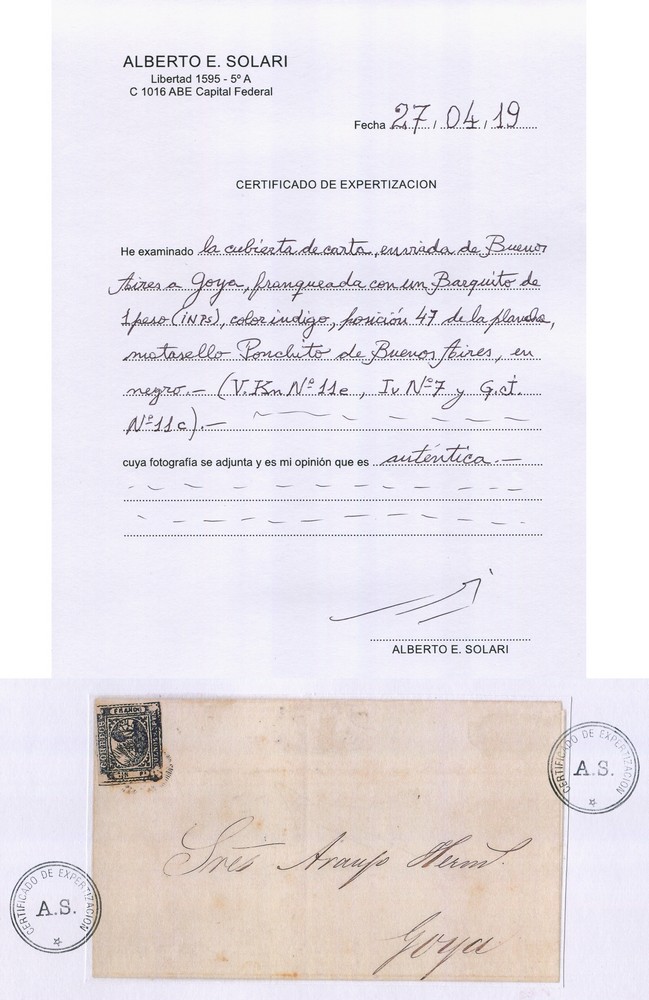 ALBERTO E. SOLARI
Libertad 1595 - 5º A
C 1016 ABE Capital Federal
Fecha 27 / 04 / 19
CERTIFICADO DE EXPERTIZACION
He examinado la cubierta de carta, enviada de Buenos
Aires a Goya, franqueada con un Barquito de
1 peso (IN Ps), color indigo, posición 47 de la plancha,
matasello Ponchito de Buenos Aires, en
negro.- (V. Kn Nº 11e, Iv Nº 7 y G.J.
Nº 11c).-
cuya fotografía se adjunta y es mi opinión que es auténtica.-
ALBERTO E. SOLARI
CERTIFICADO DE EXPERTIZACION
A.S.
FRANCO
Sres Araujo Herm.
Goya
CERTIFICADO DE EXPERTIZACION
A.S.